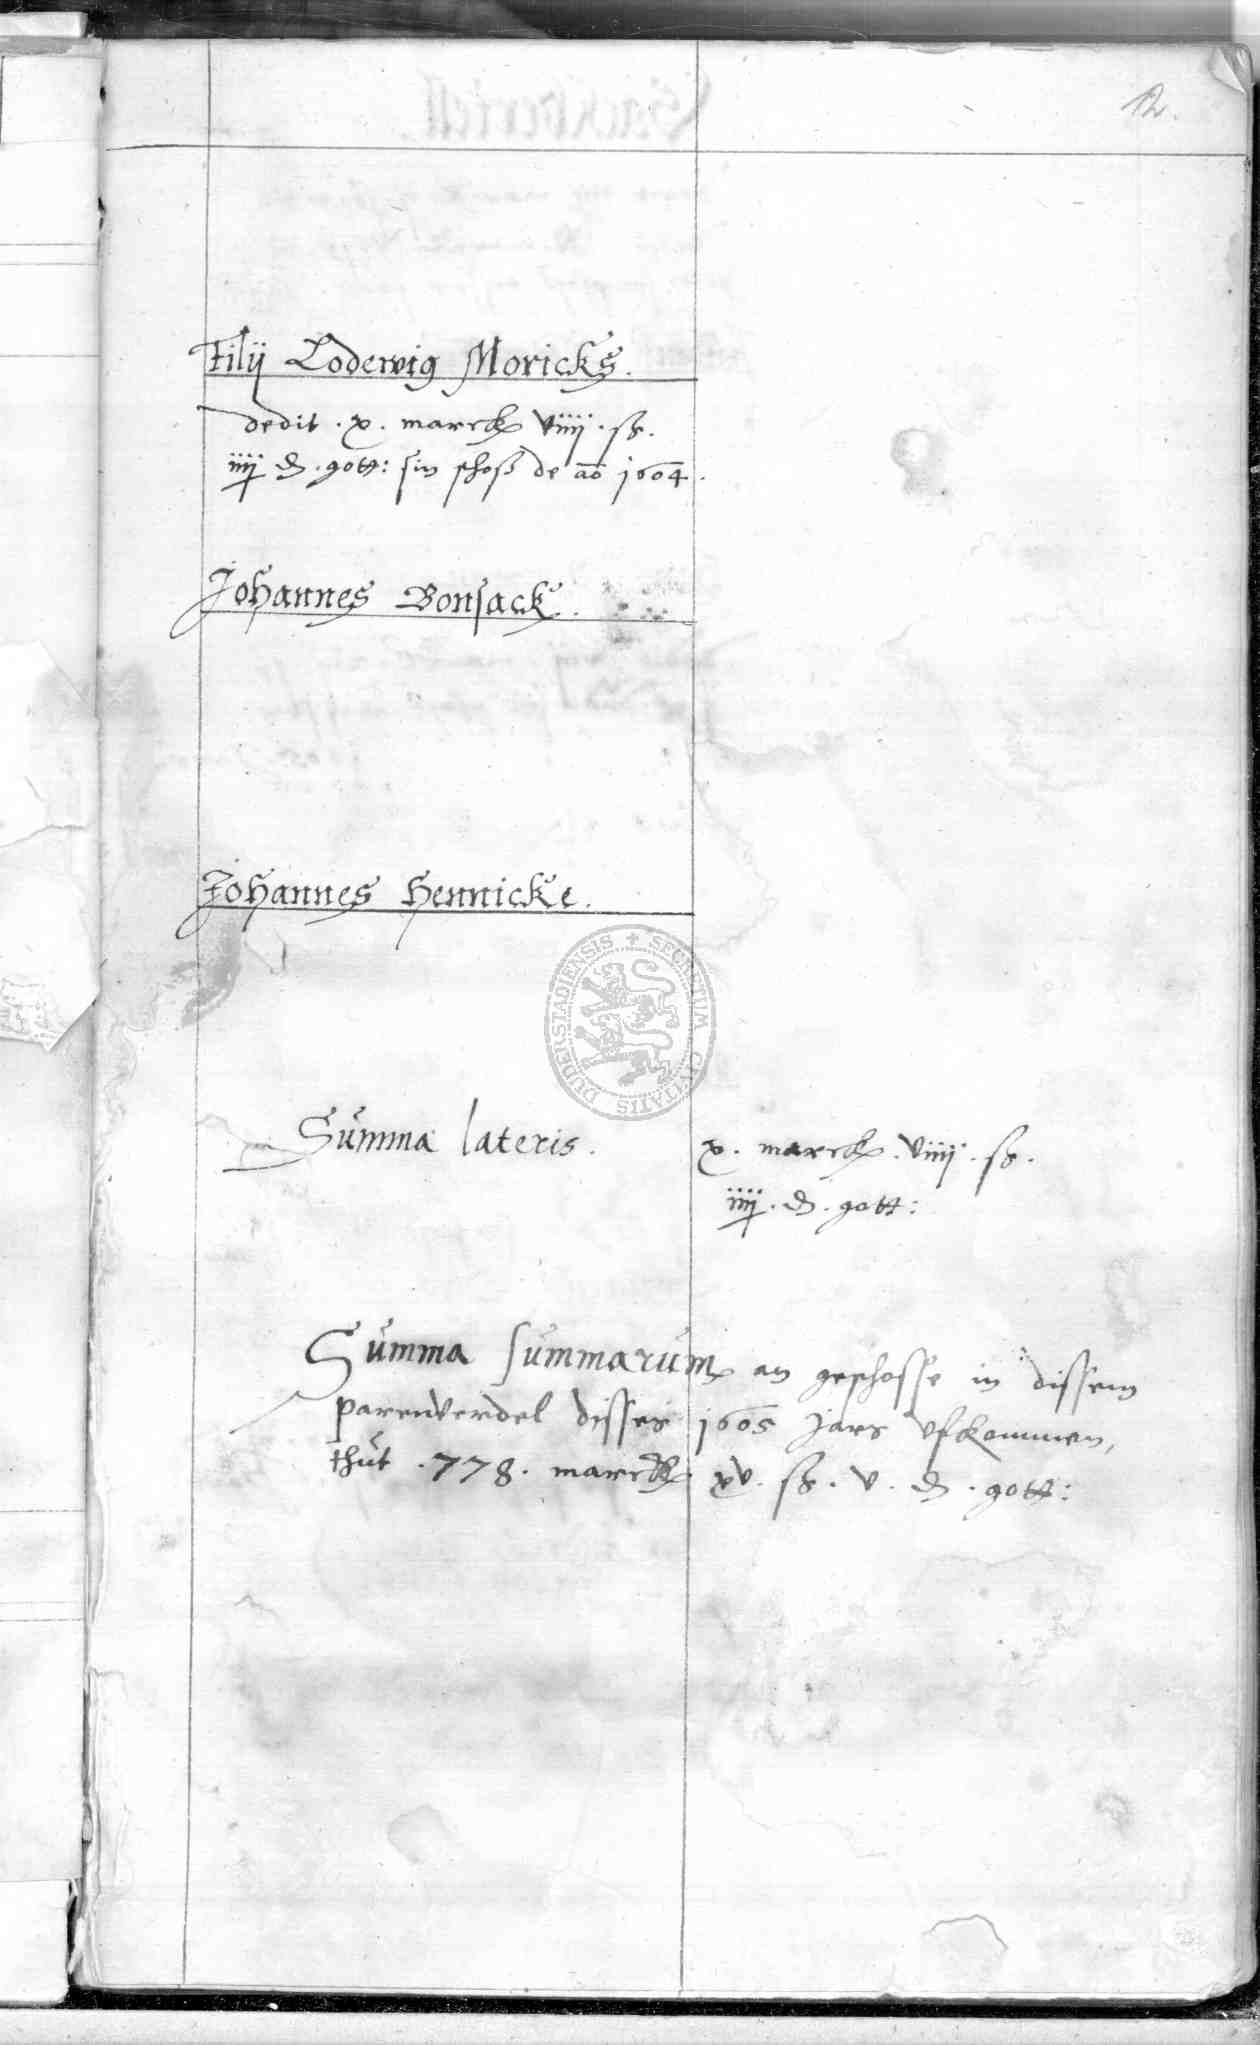 12.
Filij Lodewig Moricks.
dedit . x . marck viiij . ß .
iiij ₰ . gott: sin schoß de ao 1604 .
Johannes Bonsack .
Johannes Hennicke .
DUDERSTADIENSIS + SECRETUM CIVITATIS
Summa lateris .
x . marck . viiij . ß .
iiij . ₰ . gott:
Summa summarum an geschosse in dissem
parenverdel disses 1605 jars ufkommen,
thut . 778 . marck xv . ß . v . ₰ . gott: